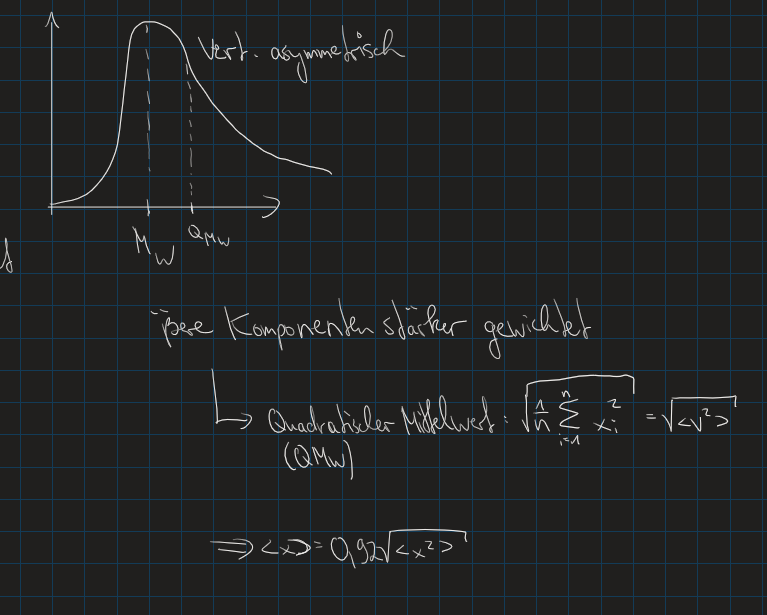 Vert. asymmetrisch
MW QMW
Komponenten stärker gewichtet
↳ Quadratischer Mittelwert: √(1/n ∑_{i=1}^{n} x_i^2) = √<v²>
(QMW)
⇒ <x> = 0,92√<x²>